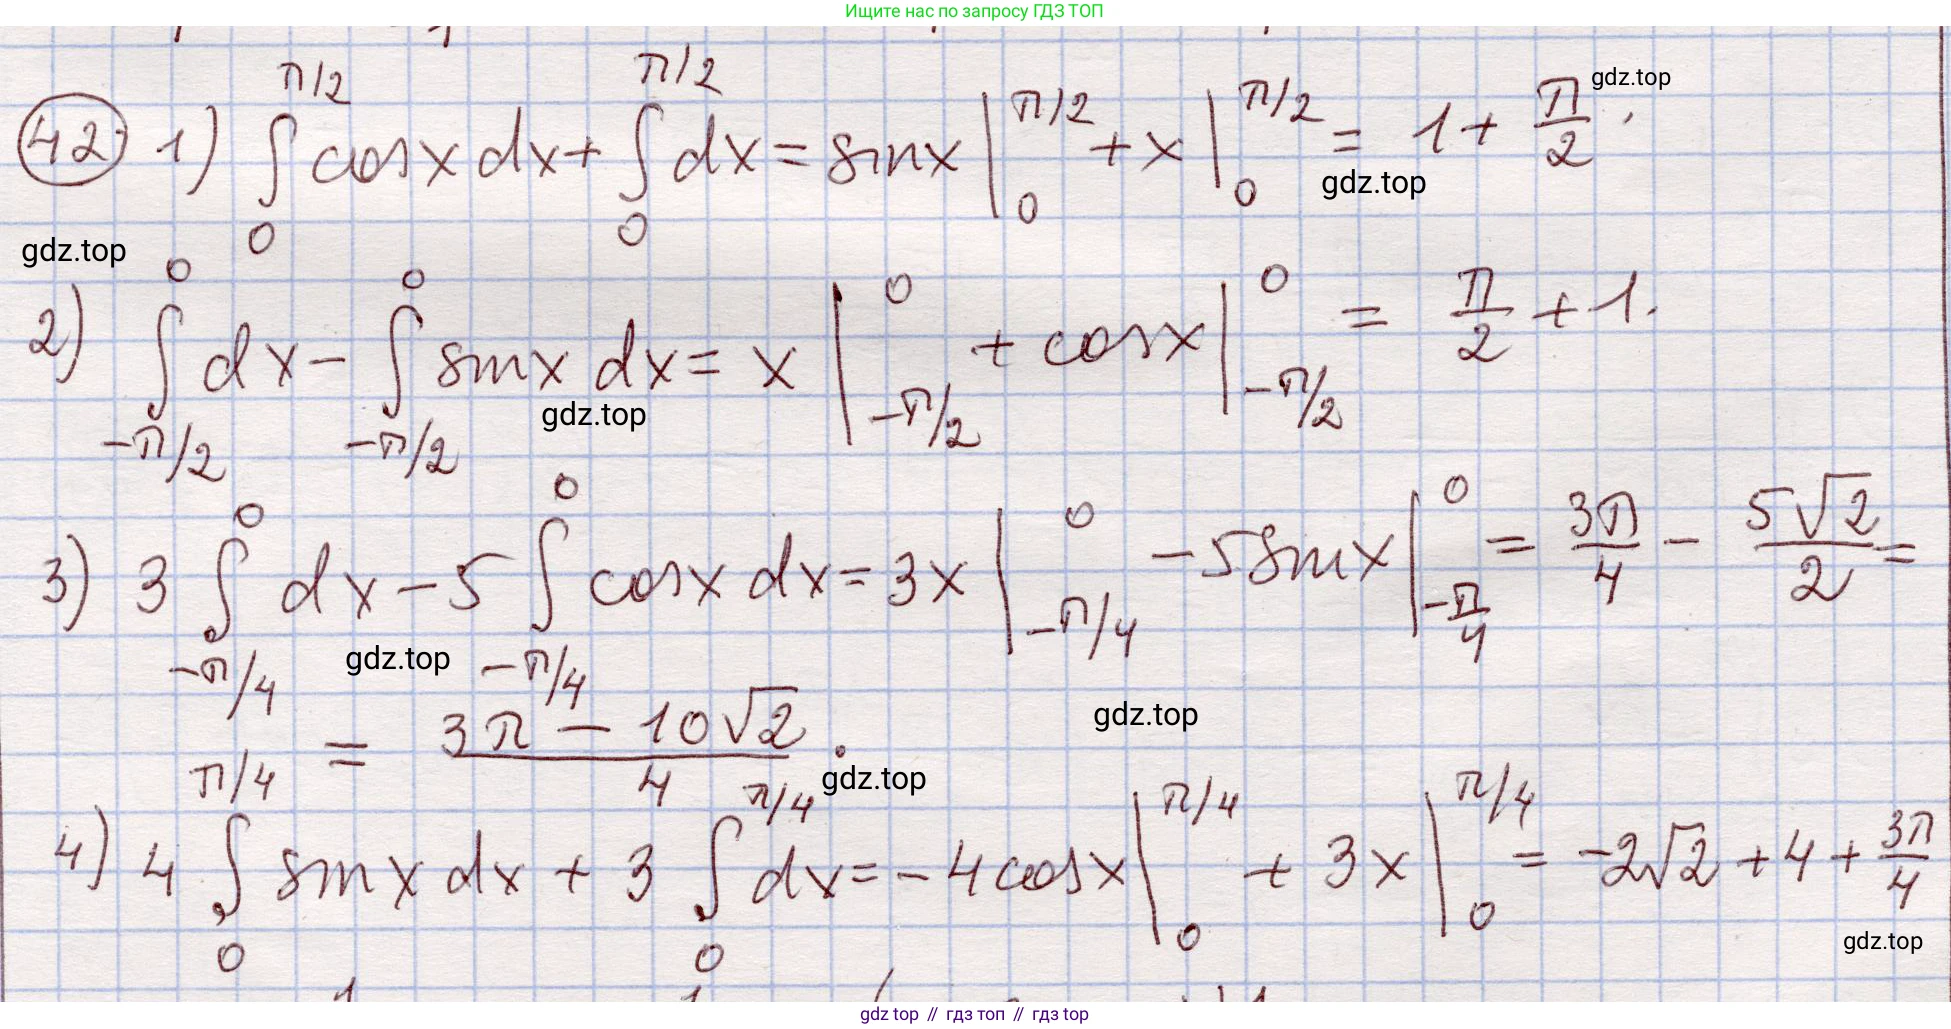 Ищите нас по запросу ГДЗ ТОП
42 1) ∫₀^{π/2} cosx dx + ∫₀^{π/2} dx = sinx |₀^{π/2} + x |₀^{π/2} = 1 + π/2.
gdz.top
gdz.top
gdz.top
2) ∫_{-π/2}^{0} dx - ∫_{-π/2}^{0} sinx dx = x |_{-π/2}^{0} + cosx |_{-π/2}^{0} = π/2 + 1.
gdz.top
3) 3 ∫_{-π/4}^{0} dx - 5 ∫_{-π/4}^{0} cosx dx = 3x |_{-π/4}^{0} - 5sinx |_{-π/4}^{0} = 3π/4 - 5√2/2 =
gdz.top
gdz.top
= (3π - 10√2)/4.
gdz.top
4) 4 ∫₀^{π/4} sinx dx + 3 ∫₀^{π/4} dx = -4cosx |₀^{π/4} + 3x |₀^{π/4} = -2√2 + 4 + 3π/4
gdz.top
gdz top // гдз топ // гдз top